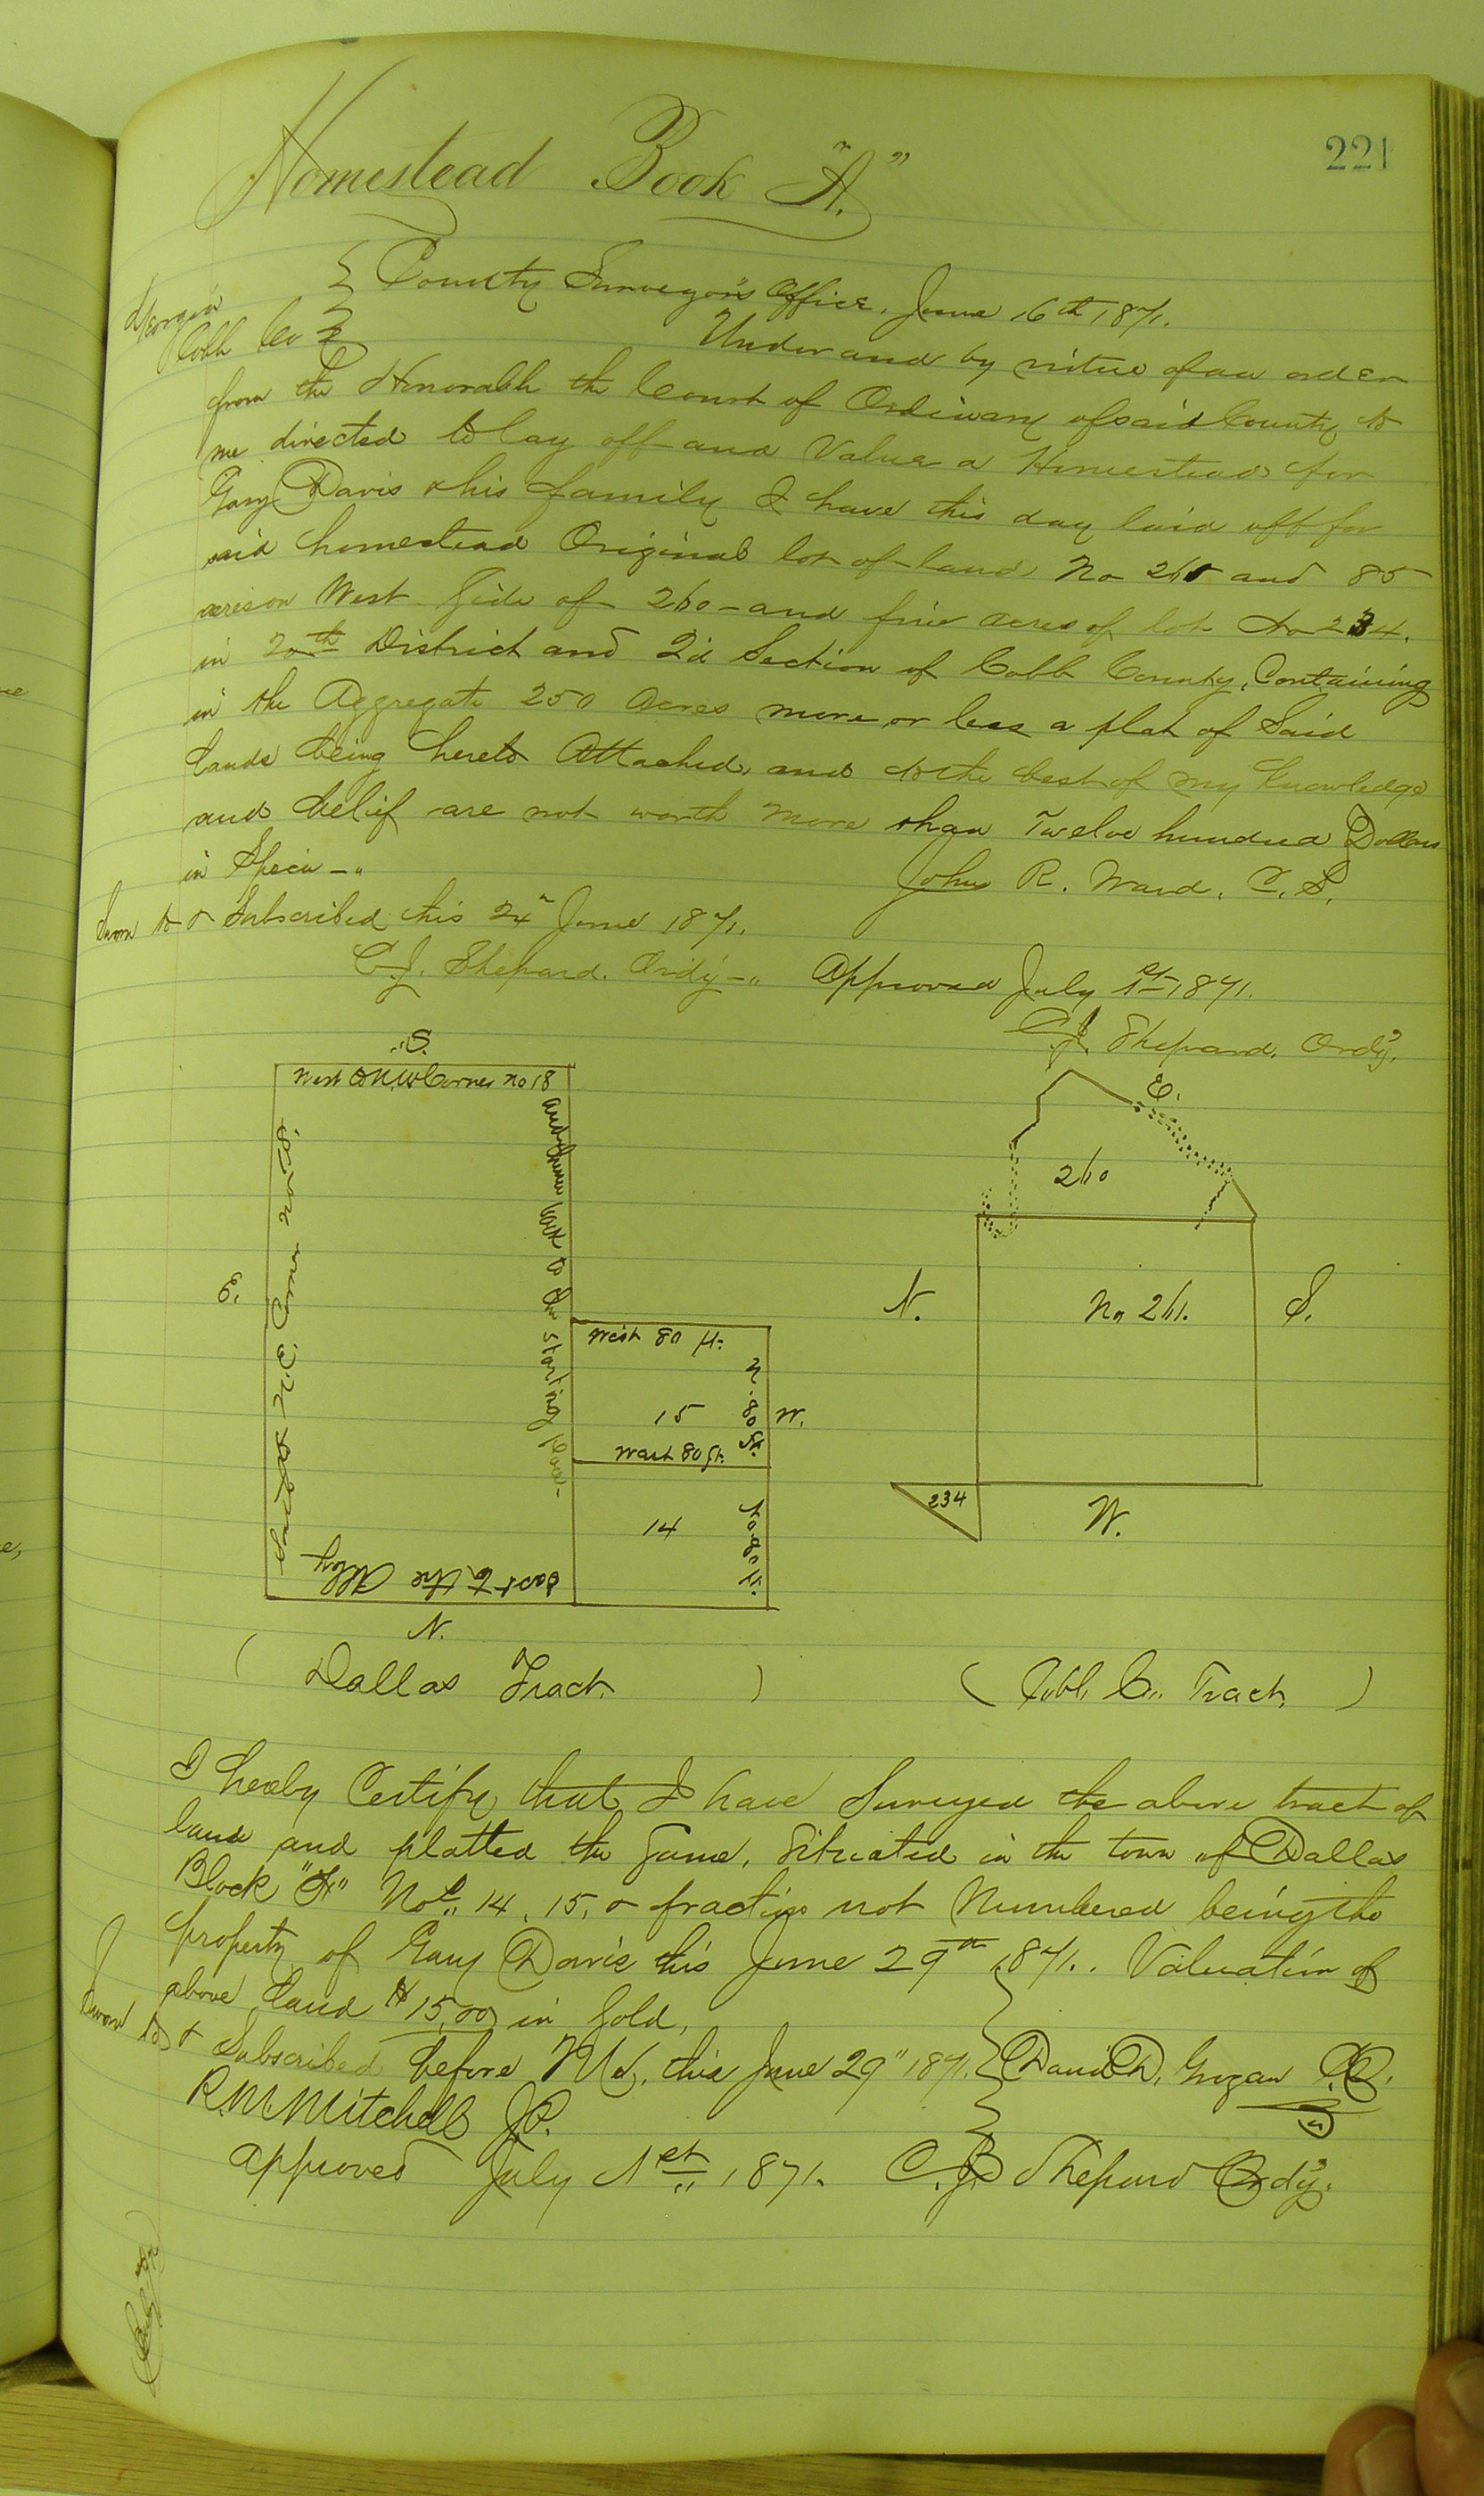 221
Homestead Book "A."
Georgia
Cobb Co
County Surveyors Office, June 16th 1871.
Under and by virtue of an order
from the Honorable the Court of Ordinary of said County to
me directed to lay off and Value a Homestead for
Gary Davis & his family I have this day laid off for
said homestead Original lot of land No 261 and 85
acres on West Side of 260 - and five acres of lot No 234.
in 20th District and 2d Section of Cobb County, Containing
in the Aggregate 250 Acres more or less a plat of Said
lands being hereto Attached, and to the best of my Knowledge
and belief are not worth more than Twelve hundred Dollars
in Specie -"
John R. Ward, C. S.
Sworn to & Subscribed this 24" June 1871.
C. J. Shepard. Ordy -"
Approved July 1st 1871.
C. J. Shepard. Ordy.
S.
West to N.W. Corner No 18
and thence back to the starting place -
E.
South to N.E. Corner No 18.
West 80 ft.
15
N. 80 ft.
W.
West 80 ft.
14
No 80 ft.
East to the Alley
N.
( Dallas Tract. )
E.
260
N.
No 261.
S.
234
W.
( Cobb, Co. Tract, )
I hereby Certify that I have Surveyed the above tract of
land and platted the Same, Situated in the town of Dallas
Block Nos. 14, 15, & fraction not Numbered being the
property of Gary Davis this June 29th 1871. Valuation of
above land $15,00 in Gold,
Sworn to & Subscribed before Me, this June 29" 1871.
David D. Grogan
R. M. Mitchell J.P.
approved July 1st 1871. C. J. Shepard Ordy.